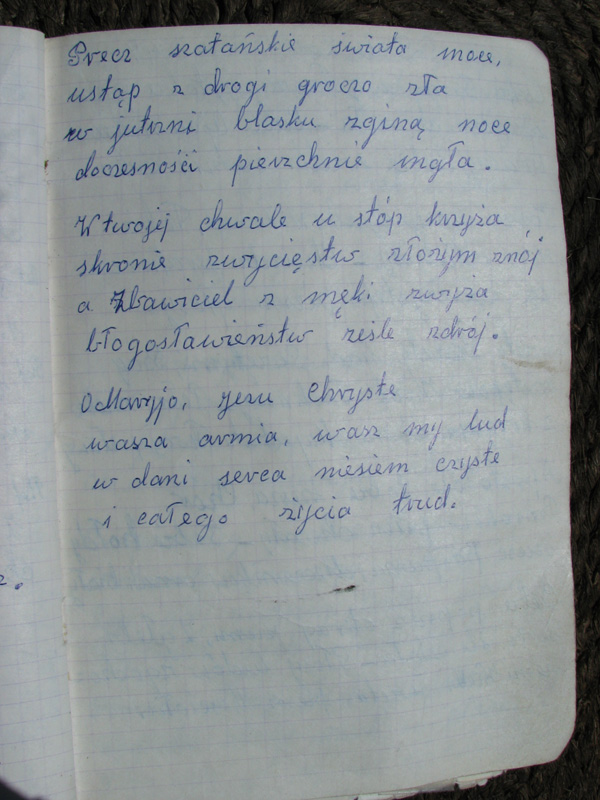 Precz szatańskie świata moce,
ustąp z drogi grozo zła
w jutrzni blasku zginą noce
doczesności pierzchnie mgła.
W twojej chwale u stóp krzyża
skronie zwycięstw złożym znój
a Zbawiciel z męki zwyża
błogosławieństw ześle zdrój.
O Maryjo, Jezu Chryste
wasza armia, wasz my lud
w dani serca niesiem czyste
i całego życia trud.